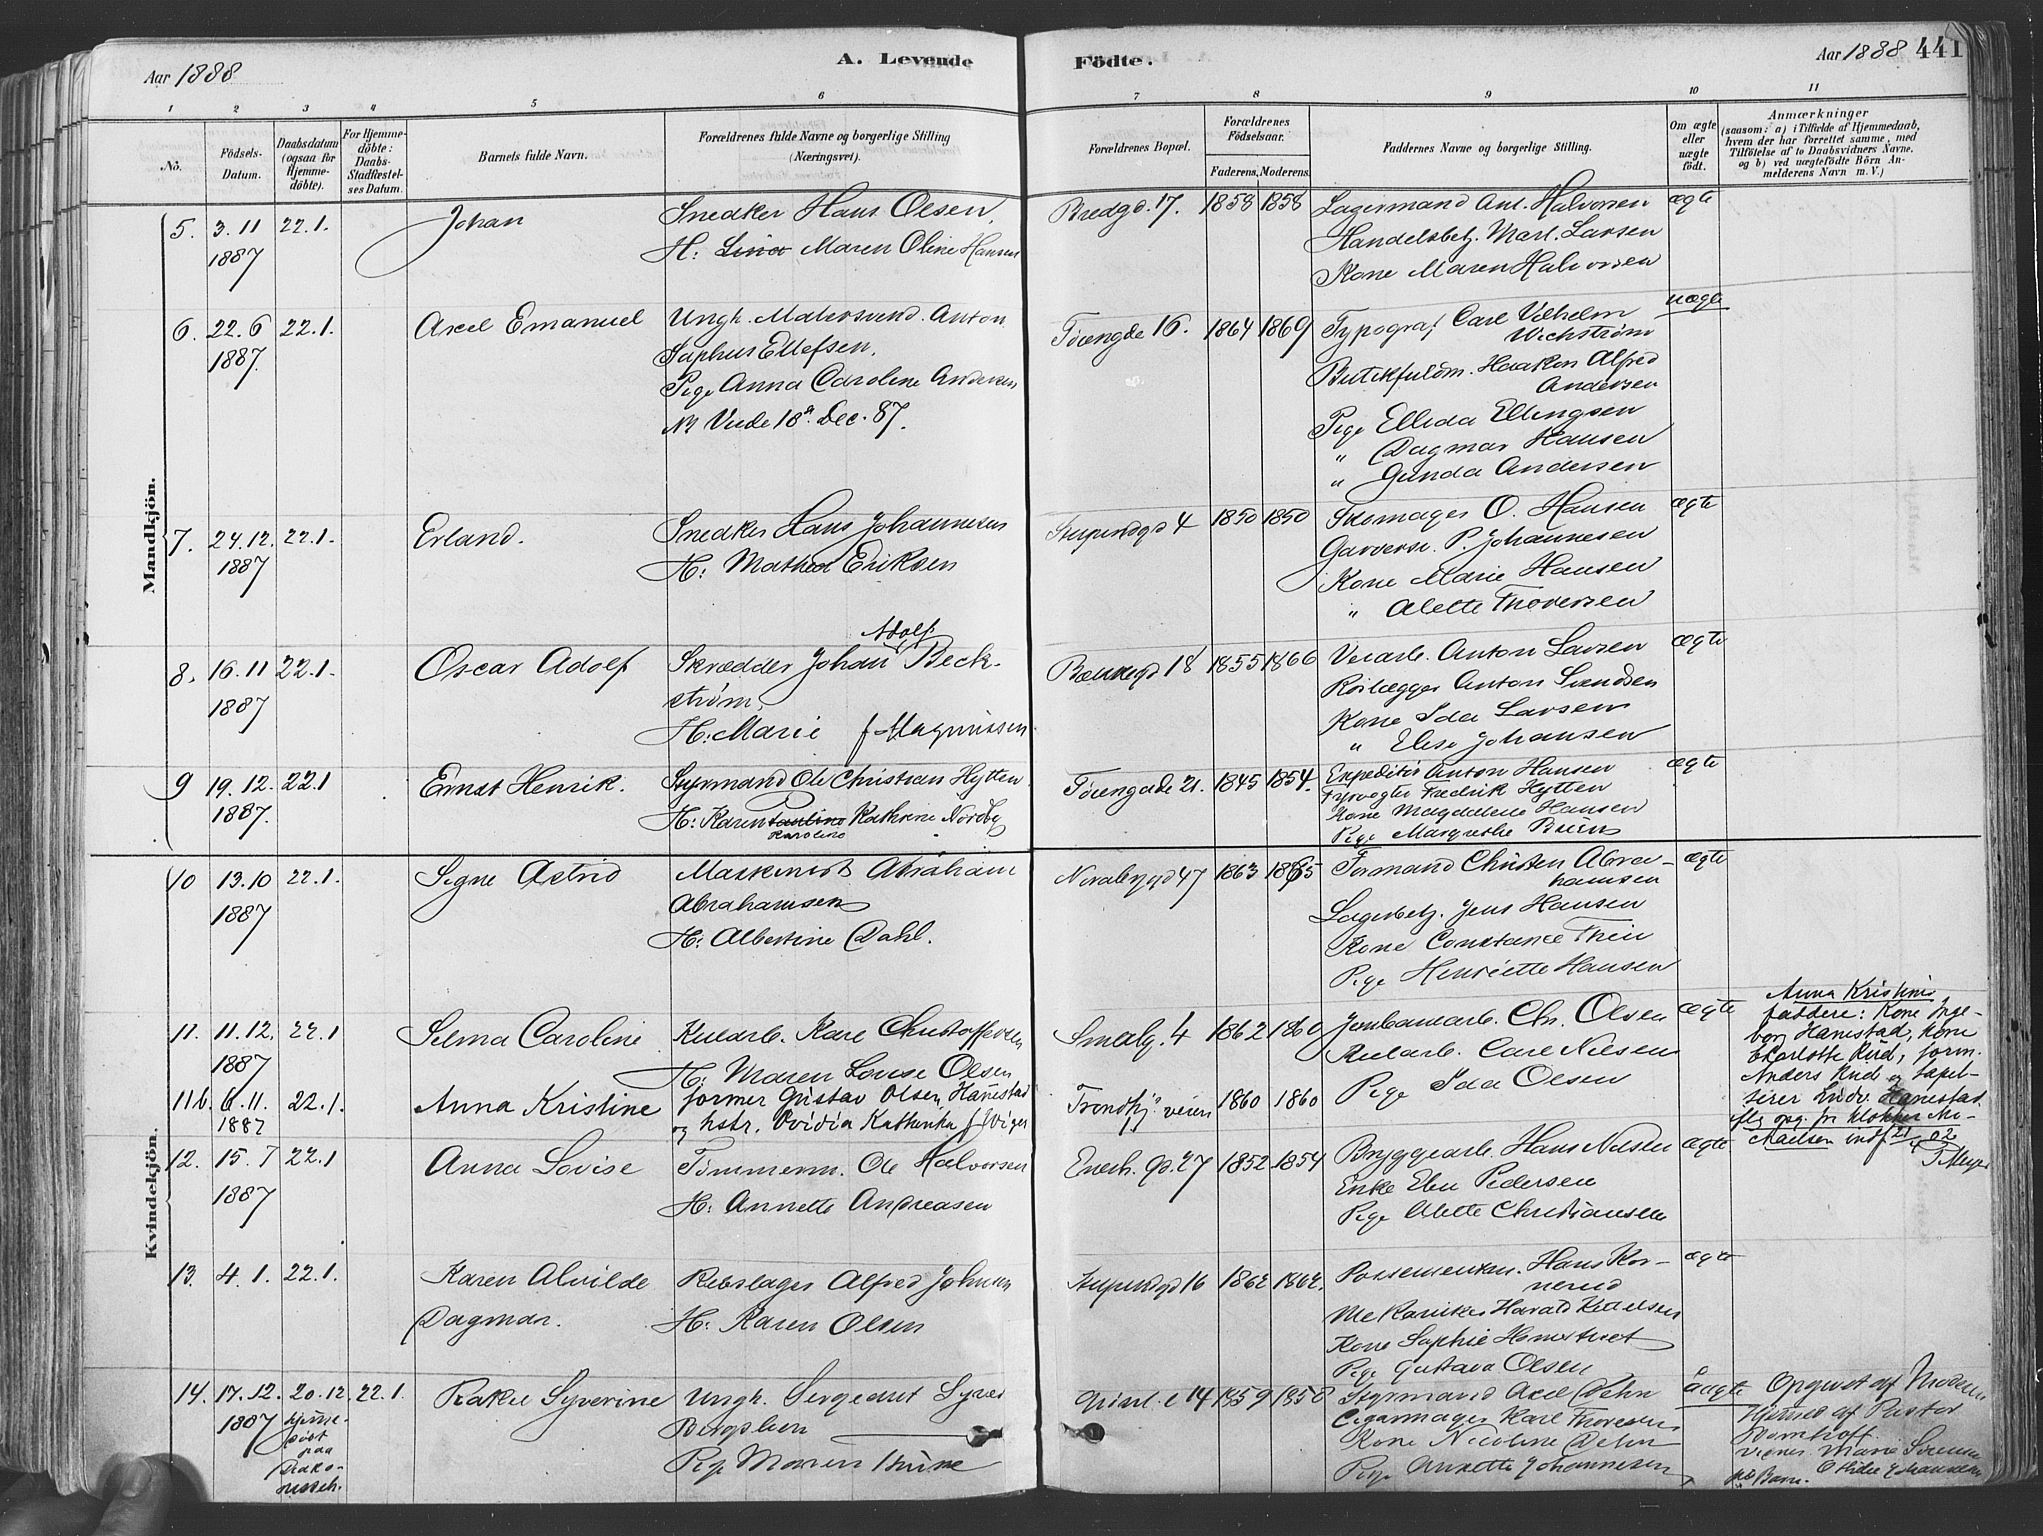 Aar 1888
A. Levende
Födte.
Aar 1888
441
1 2 3 4 5 6 7 8 9 10 11
No.
Födsels-Datum.
Daabsdatum (ogsaa for Hjemmedöbte).
For Hjemmedöbte: Daabs-Stadfæstelses Datum.
Barnets fulde Navn.
Forældrenes fulde Navne og borgerlige Stilling (Næringsvei).
Forældrenes Bopæl.
Forældrenes Födselsaar.
Faderens. Moderens.
Faddernes Navne og borgerlige Stilling.
Om ægte eller uægte født.
Anmærkninger
(saasom: a) i Tilfælde af Hjemmedaab, hvem der har forrettet samme, med Tilföielse af to Daabsvidners Navne, og b) ved uægtefödte Börn Anmelderens Navn m. V.)
Mandkjön.
5. 3.11 1887 22.1. Johan
Snedker Hans Olsen.
H: Lina Maren Oline Hansen
Bredgd. 17. 1858 1858
Lagermand Ant. Halvorsen
Handelsbetj. Mart. Larsen
Kone Maren Halvorsen
ægte
6. 22.6 1887. 22.1. Axel Emanuel
Ungk. Malersvend Anton
Sophus Ellefsen.
Pige Anna Caroline Andersen
Töiengde 16. 1864 1869
Typograf Carl Vilhelm
Wickström
Butikfuldm. Haakon Alfred
Andersen
Pige Elleda Ellingsen
" Dagmar Hansen
" Gunda Andersen
uægte
7. 24.12. 1887 22.1. Erland.
Snedker Hans Johannesen
H: Mathea Eriksen
Stupendgd 4 1850 1850
Skomager O. Hansen
Garversv. P. Johannesen
Kone Marie Hansen
" Alette Thoresen
ægte
8. 16.11 1887 22.1. Oscar Adolf
Skrædder Johan Adolf Beckström,
H: Marie f. Magnussen
18 1855 1866
Anton Larsen
Rörlægger Anton Svendsen
Kone Ida Larsen
" Elise Johansen
ægte
9 19.12. 1887. 22.1 Ernst Henrik.
Styrmand Ole Christian Hytten
H: Karen Pauline Karoline Kathrine Nordby
Töiengade 21. 1845 1854.
Expeditör Anton Hansen
Fyrvogter Fredrik Hytten
Kone Magdalene Hansen
Pige Margrethe Bruun
ægte
Kvindekjön.
10 13.10 1887 22.1. Signe Astrid
Maskinist Abraham
Abrahamsen
H: Albertine Dahl.
Nordbygd 47 1863 1865
Formand Christen Abrahamsen
Lagerbetj. Jens Hansen
Kone Constance Thiu
Pige Henriette Hansen
ægte
11. 11.12. 1887 22.1 Selma Caroline
Kularb. Karl Christoffersen
H: Maren Lovise Olsen
Smalg. 4 1862 1860
Jernbanearb. Chr. Olsen
Kularb. Carl Nilsen
Pige Ida Olsen
ægte
11b. 6.11. 1887 22.1. Anna Kristine
former Gustav Olsen Hanestad
og hstr. Ovidia Kathinka
Trondhj. veien 1860 1860
Anna Kristines
faddere: Kone Ingeborg Hanestad, kone
Charlotte Rud, form.
Anders Rud og tapetserer Ludv. Hanestad
12. 15.7 1887 22.1 Anna Lovise
Tömmerm. Ole Halvorsen
H: Annette Andreasen
Enerh. gd. 27 1852 1854
Bryggearb. Hans Nilsen
Enke Eben Pedersen
Pige Alette Christiansen
ægte
13. 4.1. 22.1. Karen Alvilde
Dagmar.
Rebslager Alfred Johnsen
H: Karen Olsen
Stupendgd 16 1862 1862.
Possementm. Hans Kornerud
Mekaniker Harald Kittelsen
Kone Sophie
Pige Gustava Olsen
ægte
14. 17.12. 1887 20.12. 22.1. Rakel Syverine
hjemmedöbt paa
Ungk. Sergeant Syver
Bergslien
Pige Maren
14 1859 1858
Styrmand Axel Dehn
Cigarmager Karl Thoresen
Kone Nicoline Dehn
Pige Annette Johannesen
Uægte
Opgivet af Moderen
Hjemmed af Pastor